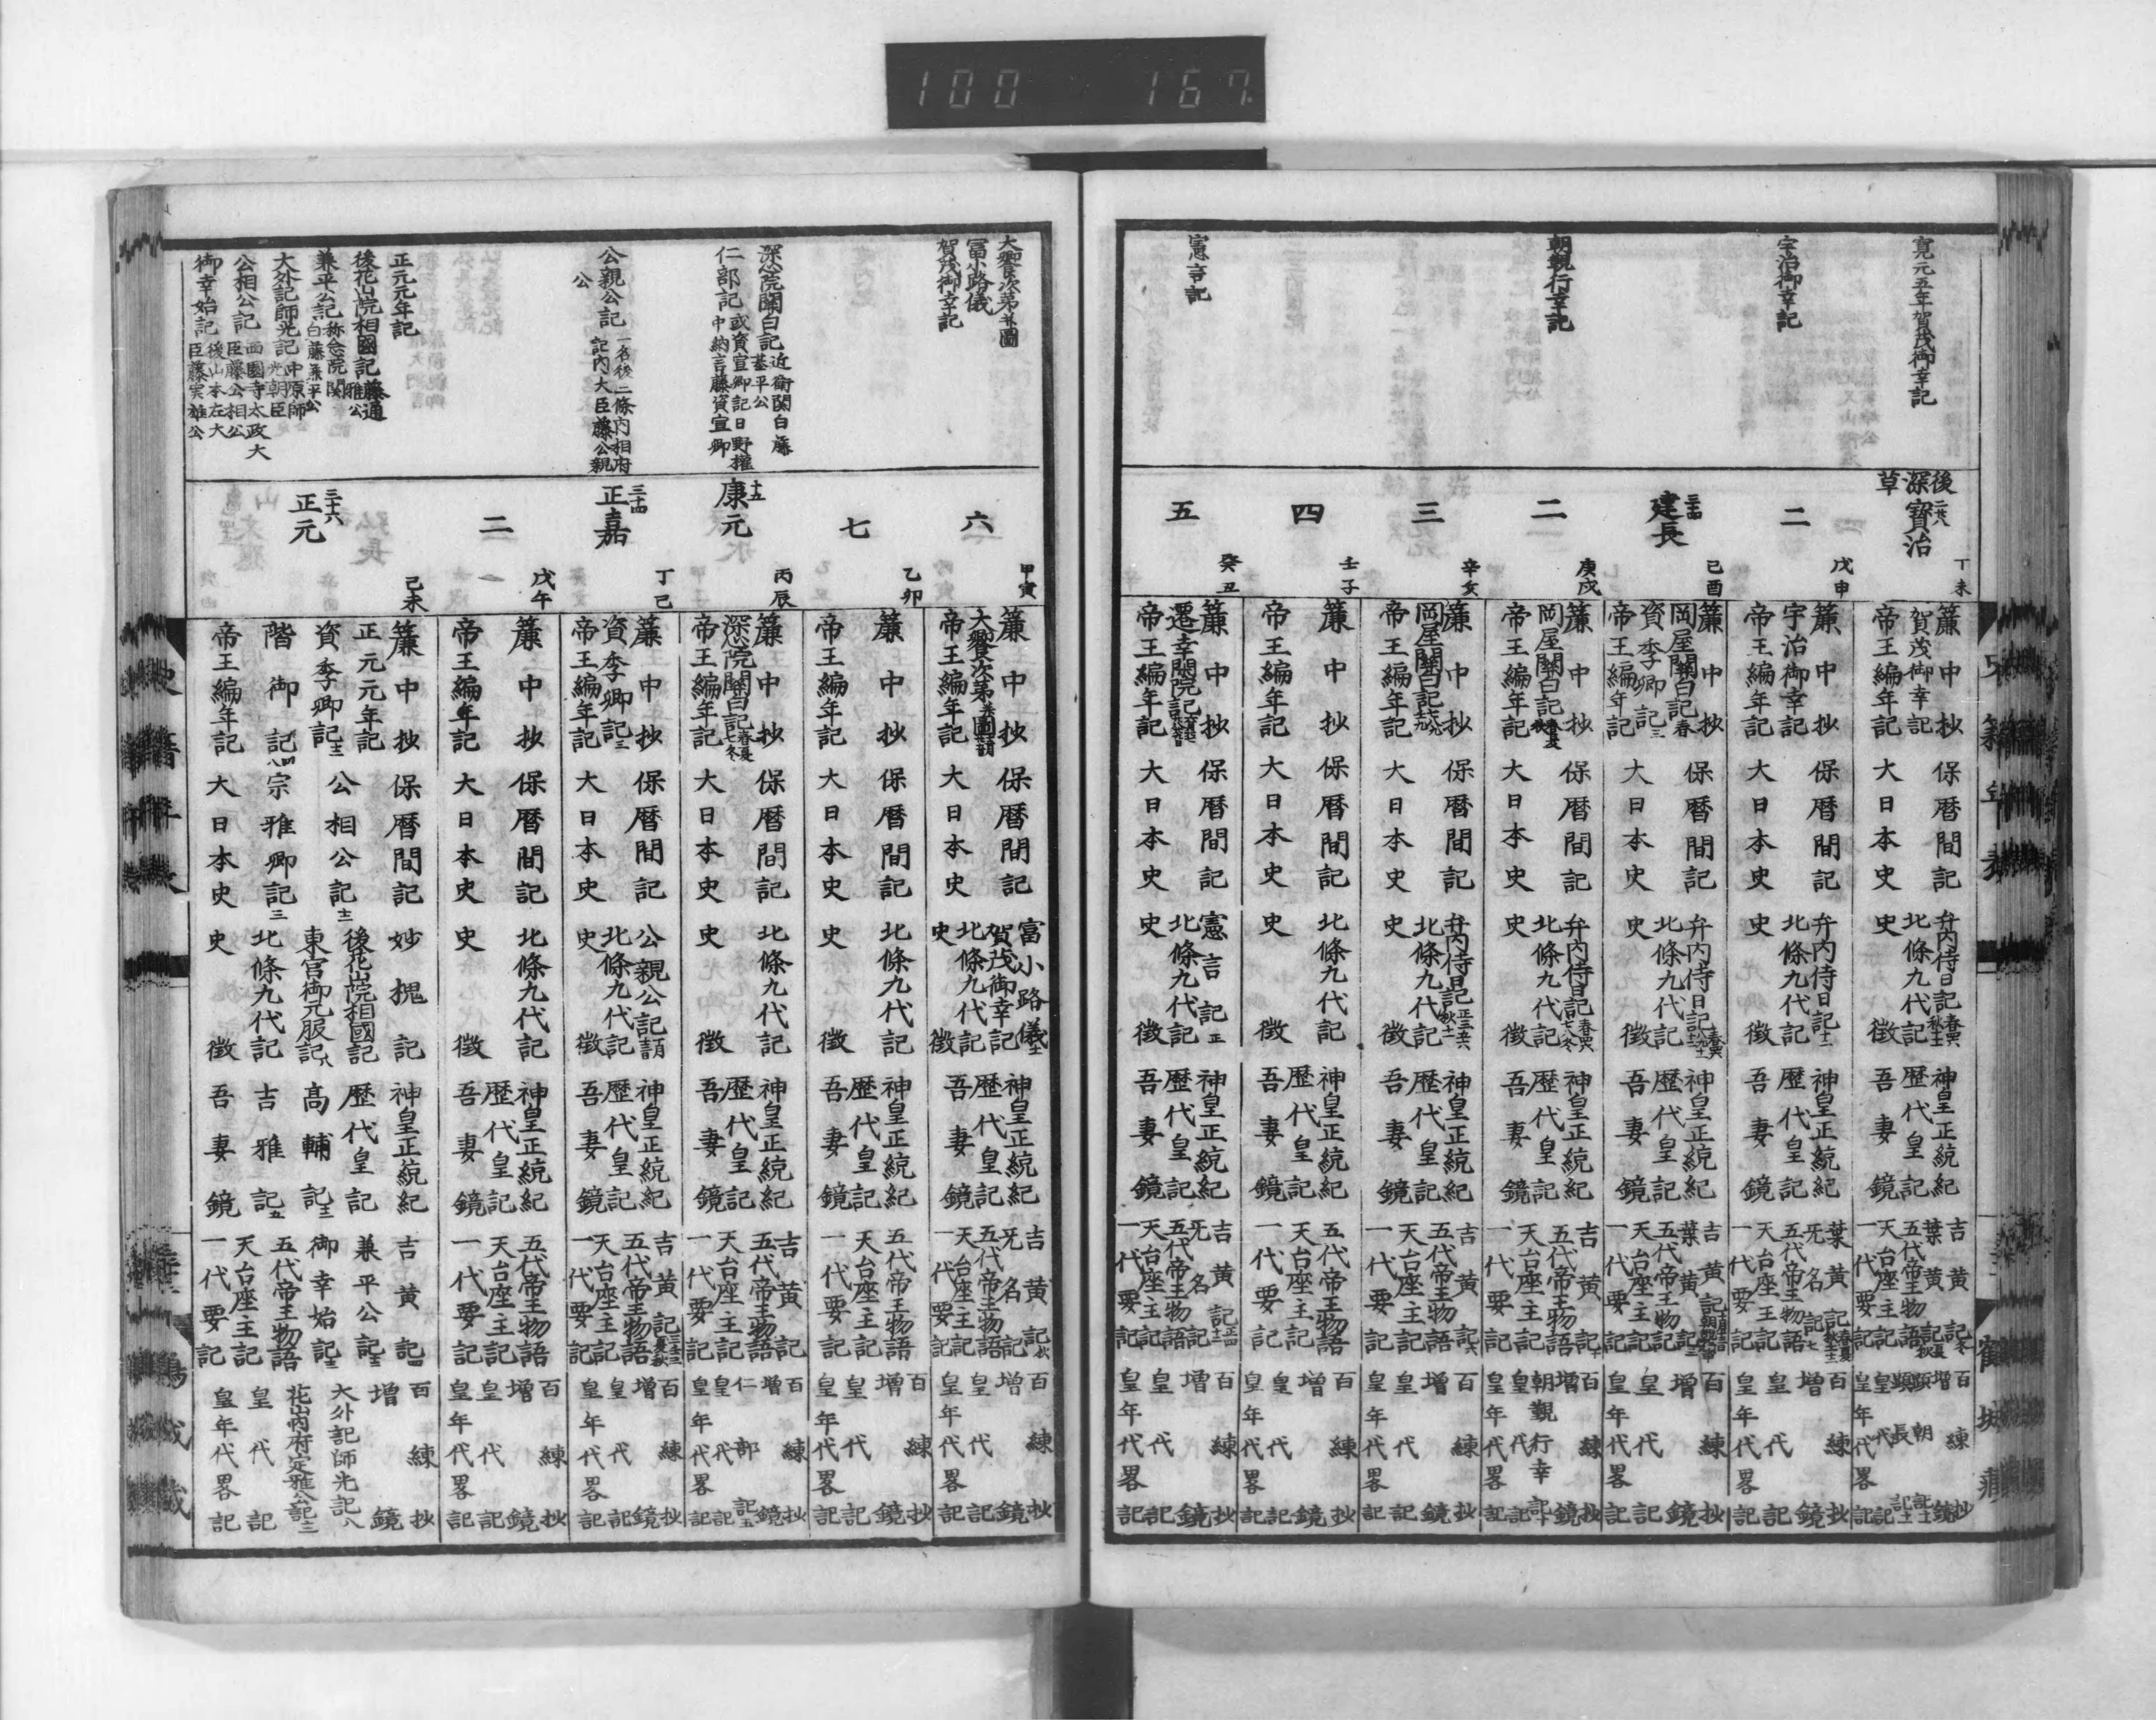 100 167
寛元五年賀茂御幸記
宇治御幸記
朝覲行幸記
憲言記
後深草
二十八
寶治
丁未
二
戊申
建長
己酉
二
庚戌
三
辛亥
四
壬子
五
癸丑
簾中抄
賀茂御幸記
帝王編年記
保暦間記
大日本史
弁内侍日記
北條九代記
史徴
神皇正統紀
歴代皇記
吾妻鏡
吉黄記
葉黄記
五代帝王物語
天台座主記
一代要記
百練抄
増鏡
顕朝記
顕長記
皇代記
皇年代畧記
簾中抄
宇治御幸記
帝王編年記
保暦間記
大日本史
弁内侍日記
北條九代記
史徴
神皇正統紀
歴代皇記
吾妻鏡
葉黄記
牙名記
五代帝王物語
天台座主記
一代要記
百練抄
増鏡
皇代記
皇年代畧記
簾中抄
岡屋關白記春
資季卿記三
帝王編年記
保暦間記
大日本史
弁内侍日記
北條九代記
史徴
神皇正統紀
歴代皇記
吾妻鏡
吉黄記
葉黄記
五代帝王物語
天台座主記
一代要記
百練抄
増鏡
皇代記
皇年代畧記
簾中抄
岡屋關白記
帝王編年記
保暦間記
大日本史
弁内侍日記
北條九代記
史徴
神皇正統紀
歴代皇記
吾妻鏡
吉黄記十
五代帝王物語
天台座主記
一代要記
百練抄
増鏡
朝覲行幸記十
皇代記
皇年代畧記
簾中抄
岡屋關白記
帝王編年記
保暦間記
大日本史
弁内侍日記
北條九代記
史徴
神皇正統紀
歴代皇記
吾妻鏡
吉黄記六
五代帝王物語
天台座主記
一代要記
百練抄
増鏡
皇代記
皇年代畧記
簾中抄
帝王編年記
保暦間記
大日本史
北條九代記
史徴
神皇正統紀
歴代皇記
吾妻鏡
五代帝王物語
天台座主記
一代要記
百練抄
増鏡
皇代記
皇年代畧記
簾中抄
遷幸閑院記
帝王編年記
保暦間記
大日本史
憲言記正
北條九代記
史徴
神皇正統紀
歴代皇記
吾妻鏡
吉黄記
牙名記
五代帝王物語
天台座主記
一代要記
百練抄
増鏡
皇代記
皇年代畧記
大饗次第并圖
富小路儀
賀茂御幸記
深心院關白記 近衛関白藤基平公
仁部記 或資宣卿記日野權中納言藤資宣卿
公親公記 一名後二條内相府記内大臣藤公親公
正元元年記
後花山院相國記 藤通雅公
兼平公記 称念院関白藤兼平公
大外記師光記 中原師光朝臣
公相公記 西園寺太政大臣藤公相公
御幸始記 後山本左大臣藤実雄公
六
甲寅
七
乙卯
十五
康元
丙辰
三十四
正嘉
丁巳
二
戊午
三十六
正元
己未
簾中抄
大饗次第并圖
帝王編年記
保暦間記
大日本史
富小路儀十一
賀茂御幸記
北條九代記
史徴
神皇正統紀
歴代皇記
吾妻鏡
吉黄記
牙名記
五代帝王物語
天台座主記
一代要記
百練抄
増鏡
皇代記
皇年代畧記
簾中抄
帝王編年記
保暦間記
大日本史
北條九代記
史徴
神皇正統紀
歴代皇記
吾妻鏡
五代帝王物語
天台座主記
一代要記
百練抄
増鏡
皇代記
皇年代畧記
簾中抄
深心院關白記
帝王編年記
保暦間記
大日本史
北條九代記
史徴
神皇正統紀
歴代皇記
吾妻鏡
吉黄記
五代帝王物語
天台座主記
一代要記
百練抄
増鏡
仁部記五
皇代記
皇年代畧記
簾中抄
資季卿記三
帝王編年記
保暦間記
大日本史
公親公記
北條九代記
史徴
神皇正統紀
歴代皇記
吾妻鏡
吉黄記
五代帝王物語
天台座主記
一代要記
百練抄
増鏡
皇代記
皇年代畧記
簾中抄
帝王編年記
保暦間記
大日本史
北條九代記
史徴
神皇正統紀
歴代皇記
吾妻鏡
五代帝王物語
天台座主記
一代要記
百練抄
増鏡
皇代記
皇年代畧記
簾中抄
正元元年記
資季卿記
階御記
帝王編年記
保暦間記
公相公記
宗雅卿記三
大日本史
妙槐記
後花山院相國記
東宮御元服記八
北條九代記
史徴
神皇正統紀
歴代皇記
高輔記
吉雅記五
吾妻鏡
吉黄記
兼平公記
御幸始記
五代帝王物語
天台座主記
一代要記
百練抄
増鏡
大外記師光記八
花山内府定雅公記三
皇代記
皇年代畧記